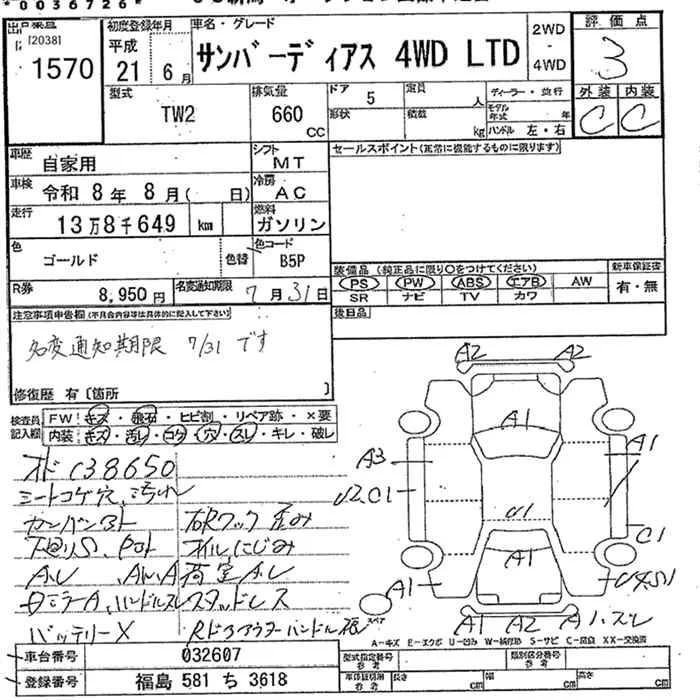 *0036726*
[2038]
1570
初度登録年月
平成
21年 6月
車名・グレード
サンバーディアス 4WD LTD
2WD
・
4WD
評価点
3
外装 内装
C C
型式
TW2
排気量
660
CC
ドア
5
形状
定員
人
積載
kg
ディーラー・並行
モデル年式 年
ハンドル 左・右
車歴
自家用
シフト
MT
セールスポイント(正常に機能するものに限ります)
車検
令和 8年 8月( 日)
冷房
AC
走行
13万8千649 km
燃料
ガソリン
色
ゴールド
色替
色コード
B5P
装備品(純正品に限り○をつけてください)
新車保証書
PS PW ABS エアB AW
SR ナビ TV カワ
有・無
R券
8,950円
名変通知期限
7月31日
後日品
注意事項申告欄(不具合内容等は具体的に記入して下さい)
名変通知期限 7/31 です
修復歴 有〔箇所
検査員
記入欄
FW キズ・飛石・ヒビ割・リペア跡・×要
内装 キズ・汚れ・コゲ・穴・スレ・キレ・破レ
シートコゲ穴、汚れ
オイルにじみ
荷室A.U
スタッドレス
バッテリーX
A2 A2
A1
A3
A1
U2 C1
U1
C1
A1
A1
スペア
A1 A2 A1・スレ
A-キズ E-エクボ U-凹み W-補修跡 S-サビ C-腐食 XX-交換済
車台番号
032607
登録番号
福島 581 ち 3618
型式指定番号
参考
類別区分番号
参考
車体証明用
参考
長さ cm
幅 cm
高さ cm